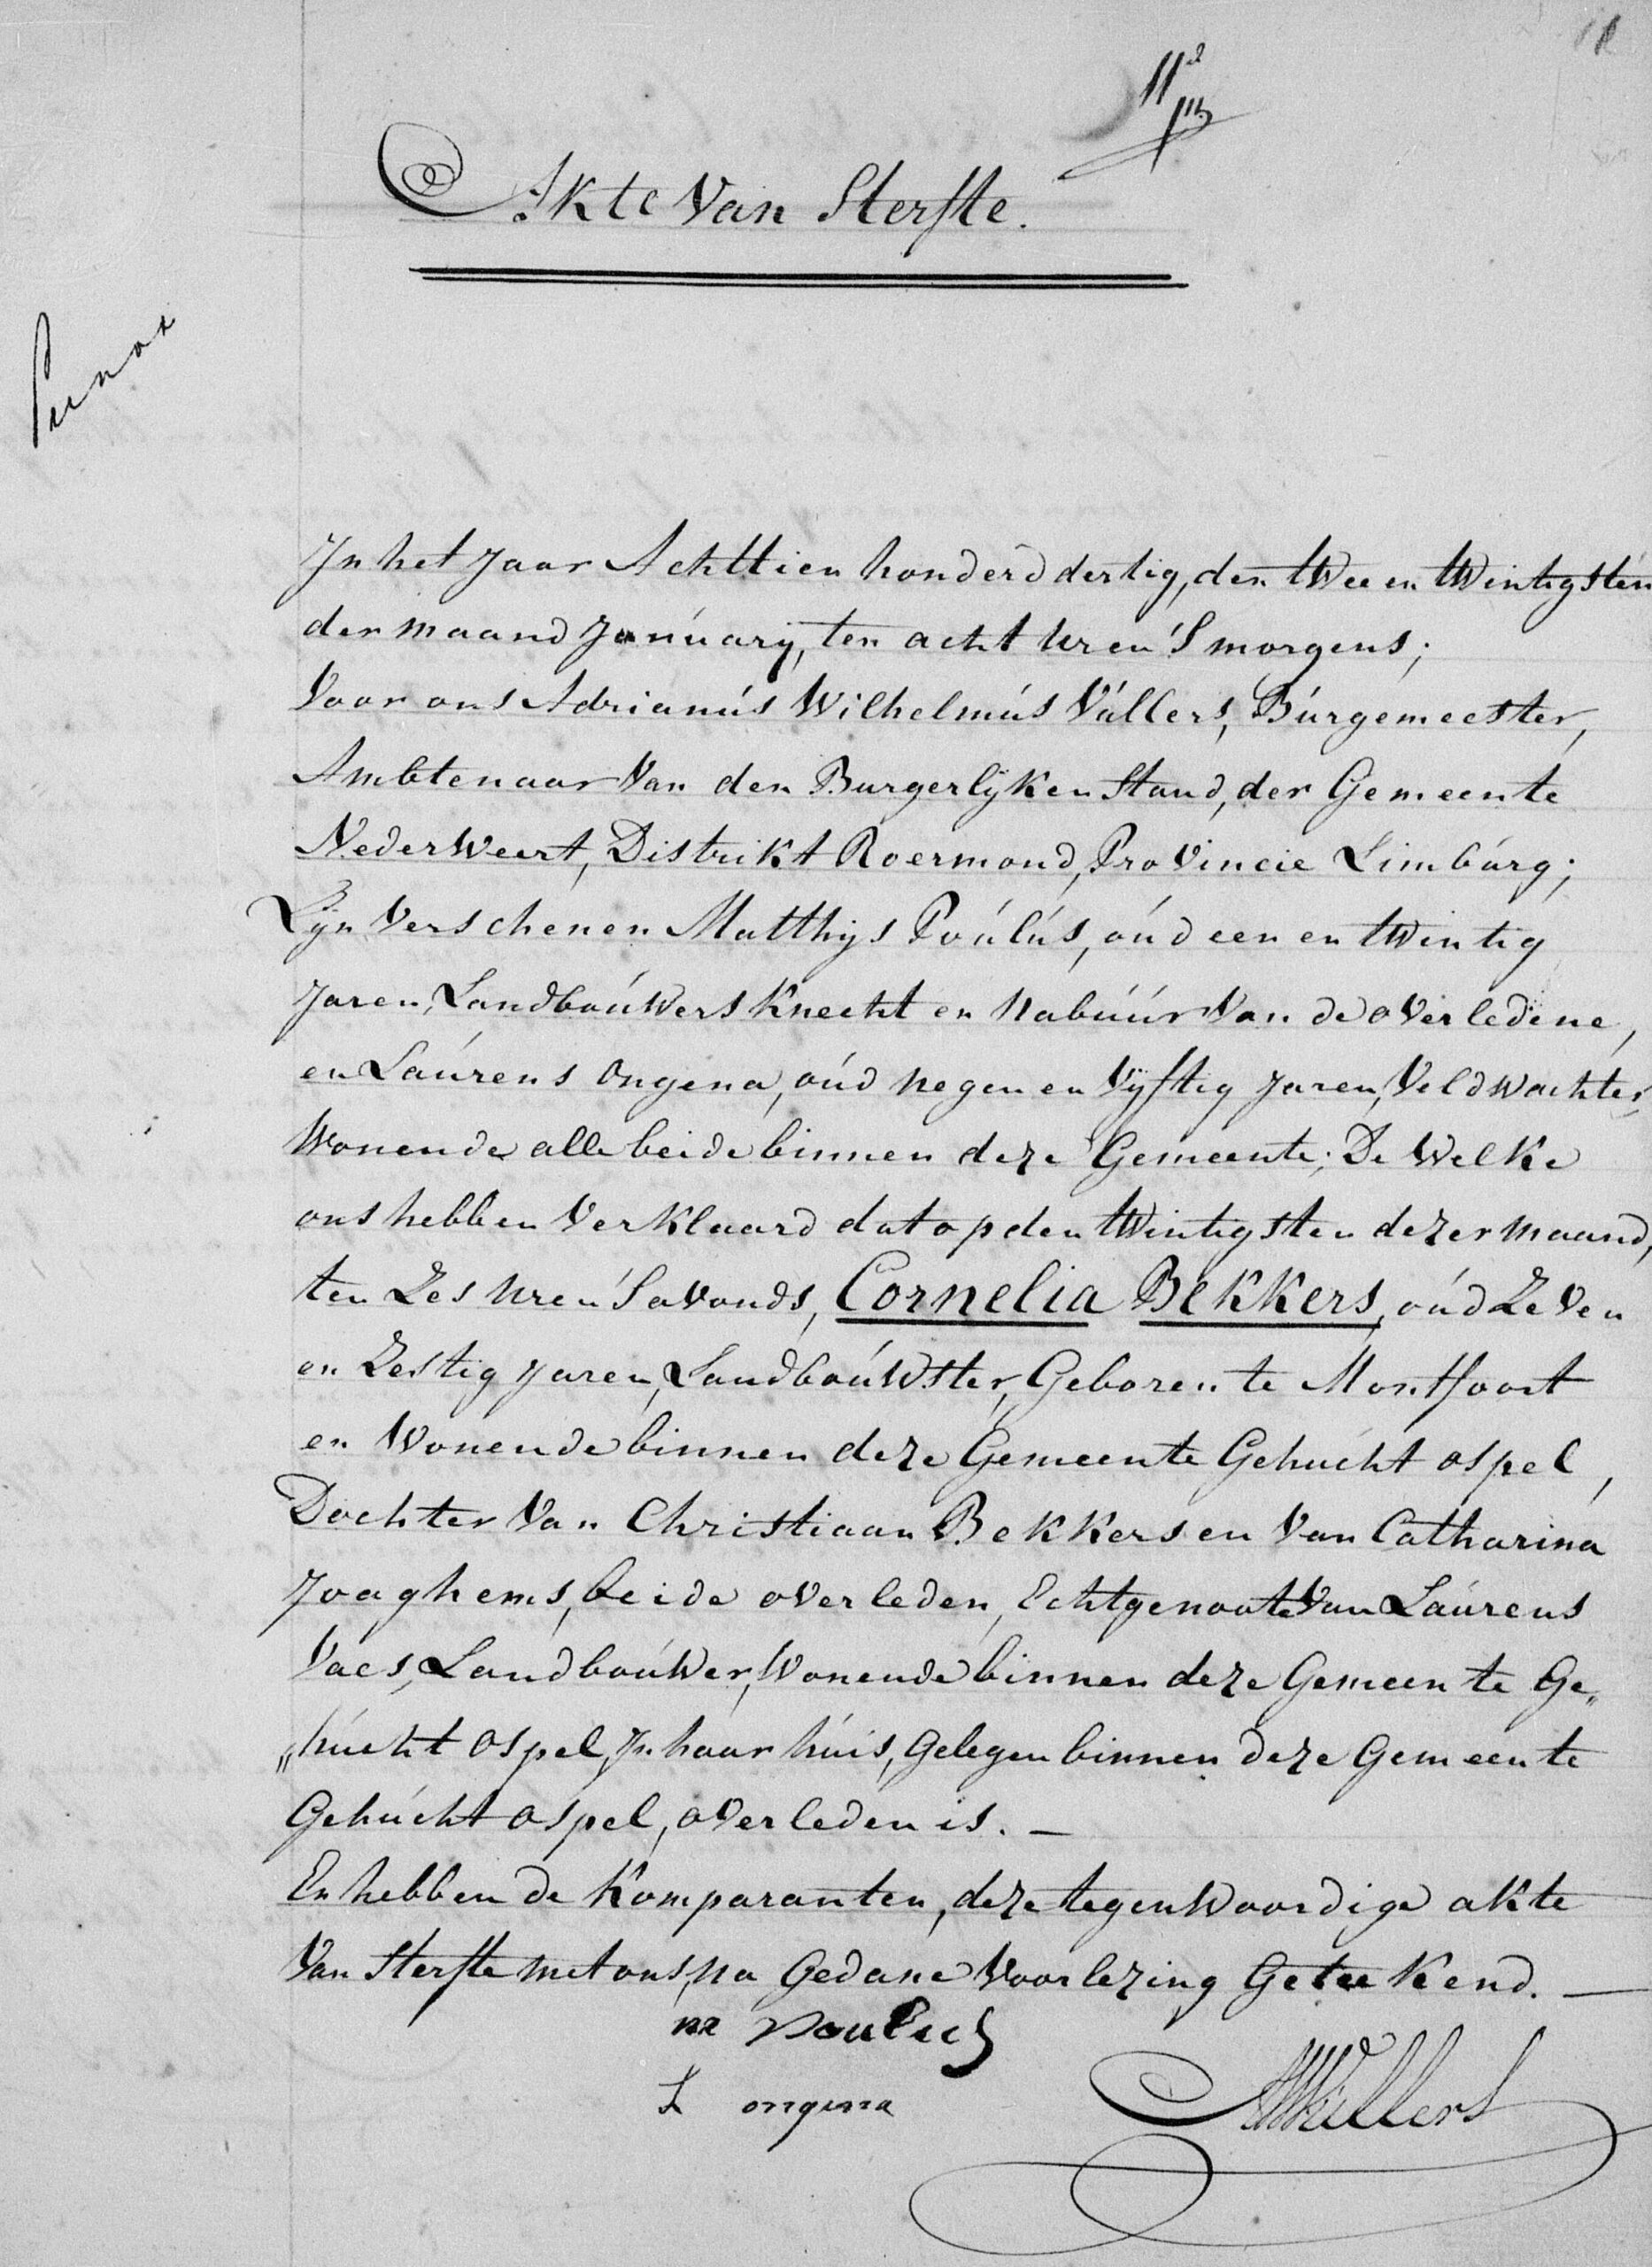 11
11
Akte Van Sterfte.
In het Jaar Achttien honderd dertig, den twee en twintigsten
der maand January, ten acht uren 'Smorgens;
Voor ons Adrianus Wilhelmus Vullers, Burgemeester,
Ambtenaar Van den Burgerlijken Stand, der Gemeente
Nederweert, Distrikt Roermond, Provincie Limburg;
Zijn Verschenen Matthijs Poulus, oud een en twintig
Jaren, Landbouwers Knecht en Nabuur Van de overledene,
en Laurens Ongena, oud negen en Vijftig Jaren, Veldwachter,
Wonende alle beide binnen deze Gemeente; De Welke
ons hebben Verklaard dat op den twintigsten dezer maand,
ten Zes uren 'Savonds, Cornelia Bekkers, oud Zeven
en Zestig Jaren, Landbouwster, Geboren te Montfoort
en Wonende binnen deze Gemeente Gehucht ospel,
Dochter Van Christiaan Bekkers en Van Catharina
Joaghems, beide overleden, Echtgenoote Van Laurens
Vaes, Landbouwer, Wonende binnen deze Gemeente Ge„
„hucht ospel, In haar huis, gelegen binnen deze Gemeente
Gehucht ospel, overleden is. —
En hebben de Komparanten, deze tegenwoordige akte
Van Sterfte met ons, na Gedane Voorlezing Geteekend. —
m Poulus
L ongena
AWVullers